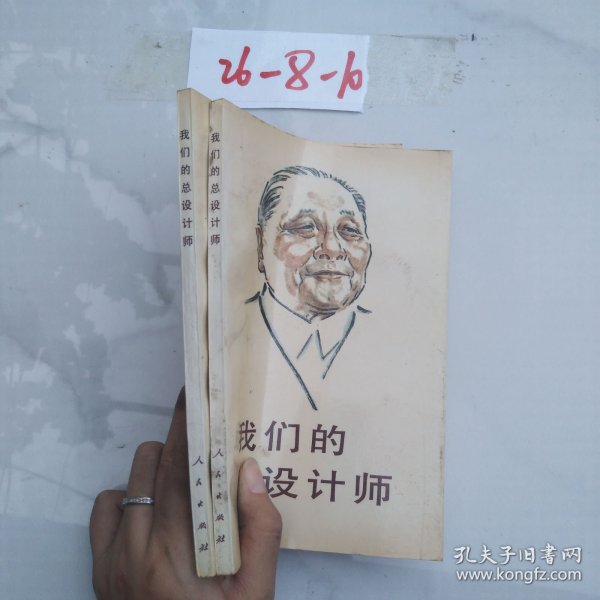 26-8-10
我们的总设计师
人民出版社
我们的总设计师
人民出版社
我们的
总设计师
孔夫子旧书网
www.kongfz.com